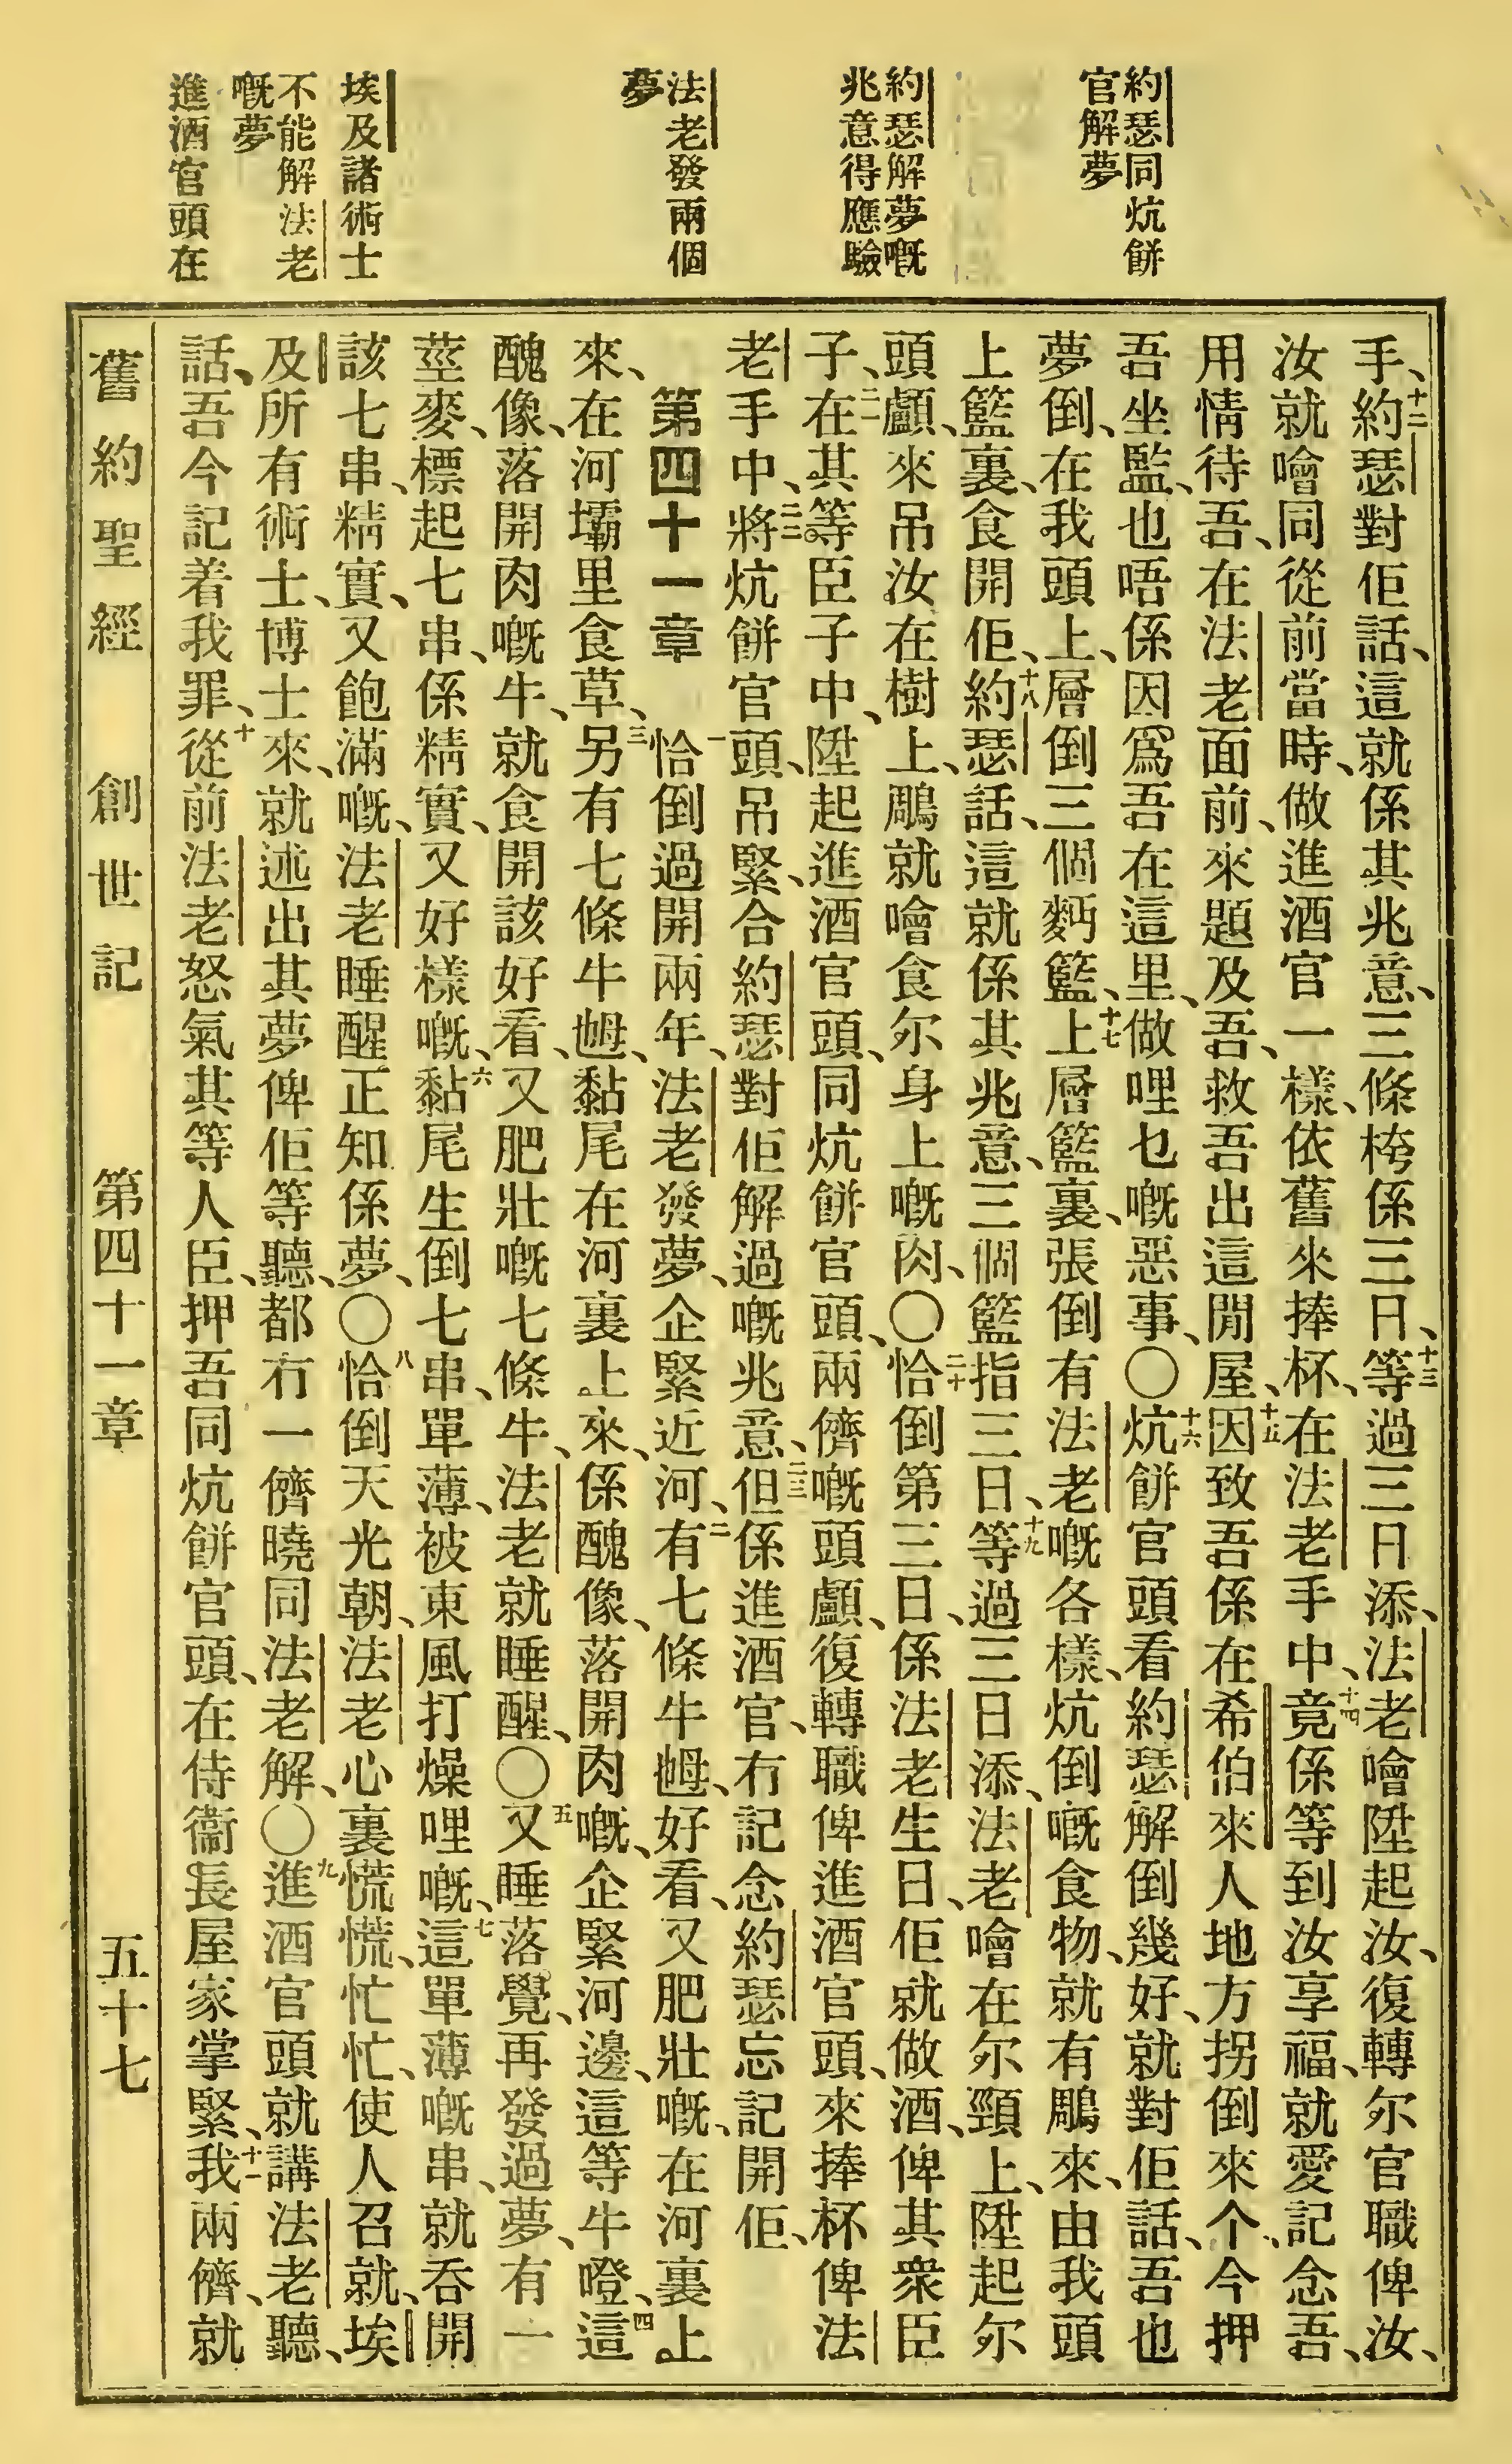 約瑟同炕餅
官解夢
約瑟解夢嘅
兆意得應驗
法老發兩個
夢
埃及諸術士
不能解法老
嘅夢
進酒官頭在
手、十二約瑟對佢話、這就係其兆意、三條桍係三日、十三等過三日添、法老噲陞起汝、復轉尔官職俾汝、
汝就噲同從前當時、做進酒官一樣、依舊來捧杯、在法老手中、十四竟係等到汝享福、就愛記念吾、
用情待吾、在法老面前、來題及吾、救吾出這間屋、十五因致吾係在希伯來人地方拐倒來个、今押
吾坐監、也唔係因爲吾在這里、做哩乜嘅惡事、〇十六炕餅官頭看約瑟解倒幾好、就對佢話、吾也
夢倒、在我頭上、層倒三個麪籃、十七上層籃裏、張倒有法老嘅各樣、炕倒嘅食物、就有鵰來、由我頭
上籃裏、食開佢、十八約瑟話、這就係其兆意、三個籃指三日、十九等過三日添、法老噲在尔頸上、陞起尔
頭顱、來吊汝在樹上、鵰就噲食尔身上嘅肉、〇二十恰倒第三日、係法老生日、佢就做酒、俾其衆臣
子、二一在其等臣子中、陞起進酒官頭、同炕餅官頭、兩儕嘅頭顱、復轉職俾進酒官頭、來捧杯俾法
老手中、二二將炕餅官頭、吊緊、合約瑟對佢解過嘅兆意、二三但係進酒官、冇記念約瑟忘記開佢、
第四十一章 一恰倒過開兩年、法老發夢、企緊近河、二有七條牛乸、好看、又肥壯嘅、在河裏上
來、在河壩里食草、三另有七條牛乸、黏尾在河裏上來、係醜像、落開肉嘅、企緊河邊、這等牛噔、四這
醜像、落開肉嘅牛、就食開該好看、又肥壯嘅七條牛、法老就睡醒、〇五又睡落覺、再發過夢、有一
莖麥、標起七串、係精實、又好樣嘅、六黏尾生倒七串、單薄、被東風打燥哩嘅、七這單薄嘅串、就吞開
該七串、精實、又飽滿嘅、法老睡醒正知係夢、〇八恰倒天光朝、法老心裏慌慌、忙忙、使人召就、埃
及所有術士、博士來、就述出其夢俾佢等聽、都冇一儕曉同法老解、〇九進酒官頭就講法老聽、
話、吾今記着我罪、十從前法老怒氣其等人臣、押吾同炕餅官頭、在侍衞長屋家掌緊、十一我兩儕、就
舊約聖經 創世記 第四十一章 五十七